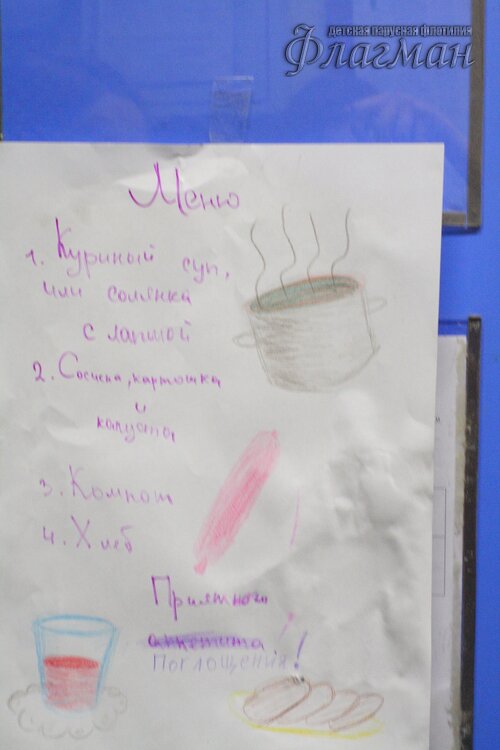 детская парусная флотилия
Флагман
Меню
1. Куриный суп,
или солянка
с лапшой
2. Сосиска, картошка
и
капуста
3. Компот
4. Хлеб
Приятного
аппетита!
поглощения!